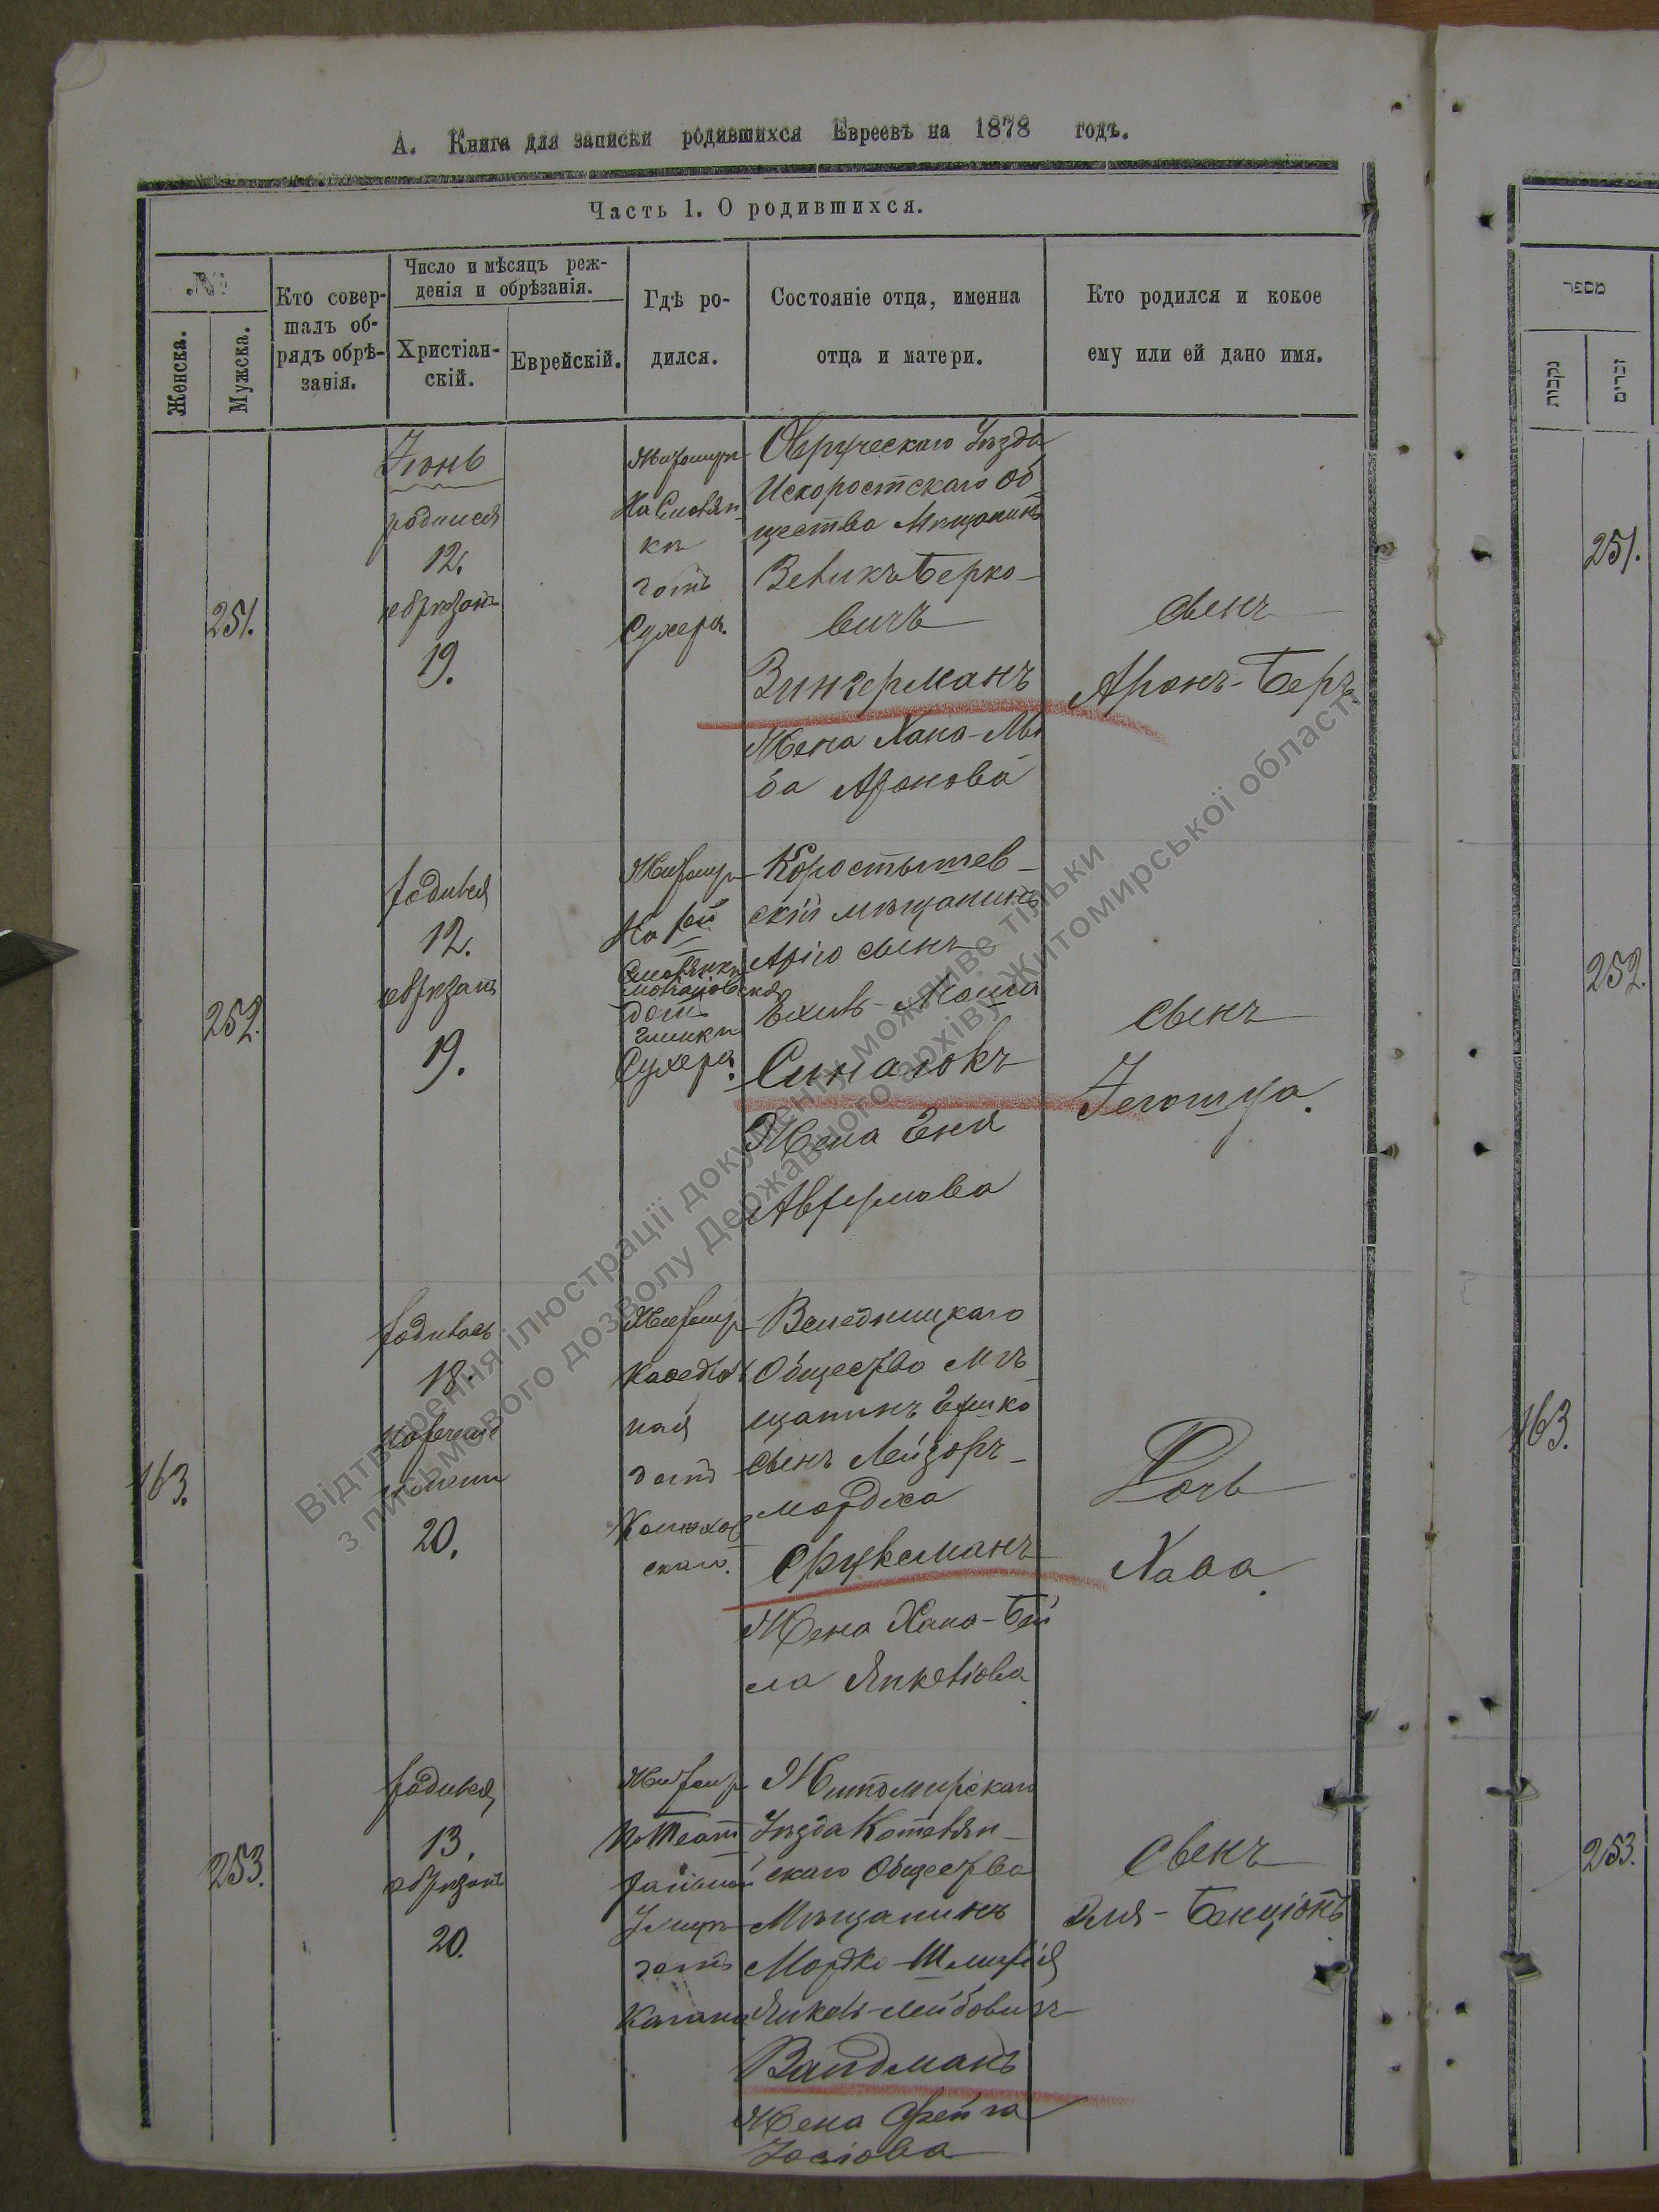 А. Книга для записки родившихся Евреевъ на 1878 годъ.
Часть 1. О родившихся.
№
Женска.
Мужска.
Кто совер-
шалъ об-
рядъ обрѣ-
занія.
Число и мѣсяцъ реж-
денія и обрѣзанія.
Христіан-
скій.
Еврейскій.
Гдѣ ро-
дился.
Состояніе отца, именна
отца и матери.
Кто родился и кокое
ему или ей дано имя.
251.
Іюнь
родился
12.
обрѣзанъ
19.
Житомиръ
домъ
Сухера.
Овручскаго Уѣзда
Искоростскаго Об-
щества Мѣщанинъ
Зевикъ Берко-
вичъ
Зингерманъ
Жена Хана-Ли
ба Аронова
сынъ
Аронъ-Беръ
252.
родился
12.
обрѣзанъ
19.
Житомир
На
домъ
Сухера.
Коростышев-
скій мѣщанинъ
сынъ
Ехиль-Мошка
Синалокъ
Жена Эня
Аврумова
сынъ
Іегошуа.
163.
родилась
18.
20.
Житомир
домъ
скаго.
Веледницкаго
Общества мѣ-
щанинъ Эршко
сынъ Лейзоръ-
Мордха
Фуксманъ
Жена Хана-Бей
ла Янкеліова
Дочь
Хава.
253.
родился
13.
обрѣзанъ
20.
Житомир
домъ
Кагана
Житомирскаго
Уѣзда
скаго Общества
Мѣщанинъ
Мордко-Шмирія
Янкель-Лейбовичъ
Вайдманъ
Жена Фейга
Іосіова
сынъ
Эля-Бенціонъ
מספר
נקבות
זכרים
251.
252.
163.
253.
Відтворення ілюстрації документу можливе тільки
з письмового дозволу Державного архіву Житомирської області